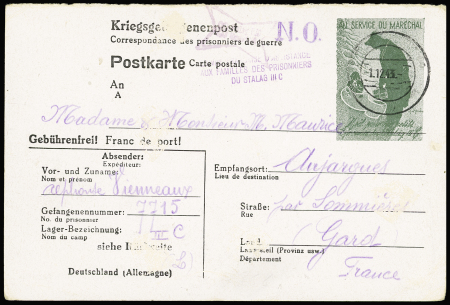 Kriegsgefangenenpost
Correspondance des prisonniers de guerre
N.O.
AU SERVICE DU MARÉCHAL
Postkarte Carte postale
AUX FAMILLES DES PRISONNIERS
DU STALAG III C
1.12.43.
An
A
Madame Monsieur Maurice
Gebührenfrei! Franc de port!
Absender:
Expéditeur:
Vor- und Zuname:
Nom et prenom
Vienneaux
Gefangenennummer: 7715
No. du prisonnier
Lager-Bezeichnung: III C
Nom du camp
siehe
Deutschland (Allemagne)
Empfangsort: Aujargues
Lieu de destination
Straße: par Sommières
Rue
Land: Gard
Département
France